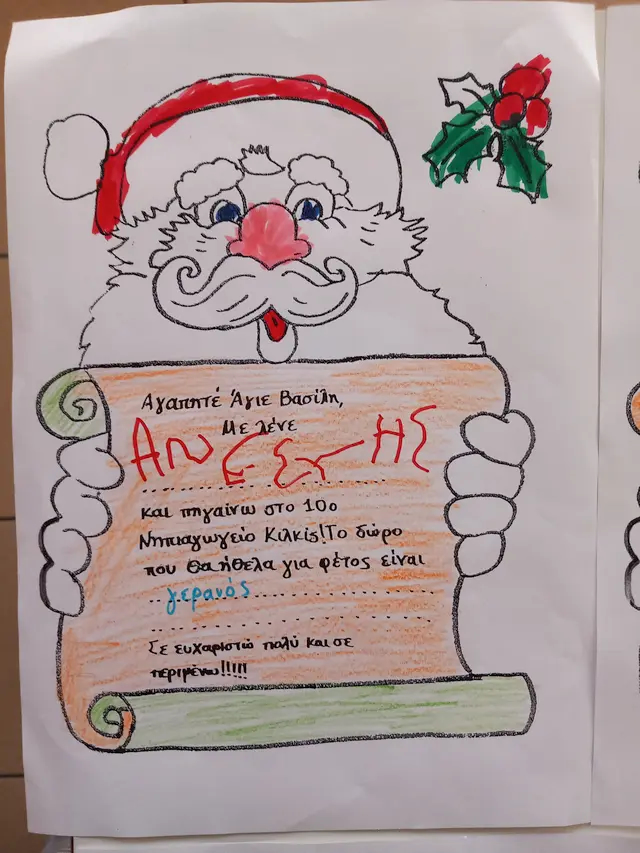 Αγαπητέ Άγιε Βασίλη,
Με λένε
και πηγαίνω στο 10ο
Νηπιαγωγείο Κιλκίς!Το δώρο
που θα ήθελα για φέτος είναι
γερανός
Σε ευχαριστώ πολύ και σε
περιμένω!!!!!